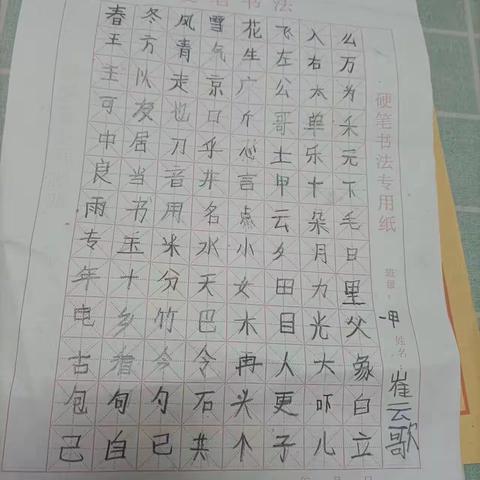 笔书法
春冬风雪花飞入么
王方青气生左右万
主以走京广公太为
可友也口斤哥单禾
中居刀乎心土乐元
良当音井言甲十下
雨书用名点云朵毛
专玉米水小乡月日
年十分天女田力里
电乡竹巴木目光父
古着今令再人大象
包句勺石头更吓白
己自已共个子儿立
硬笔书法专用纸
班级：一甲 姓名：崔云歌